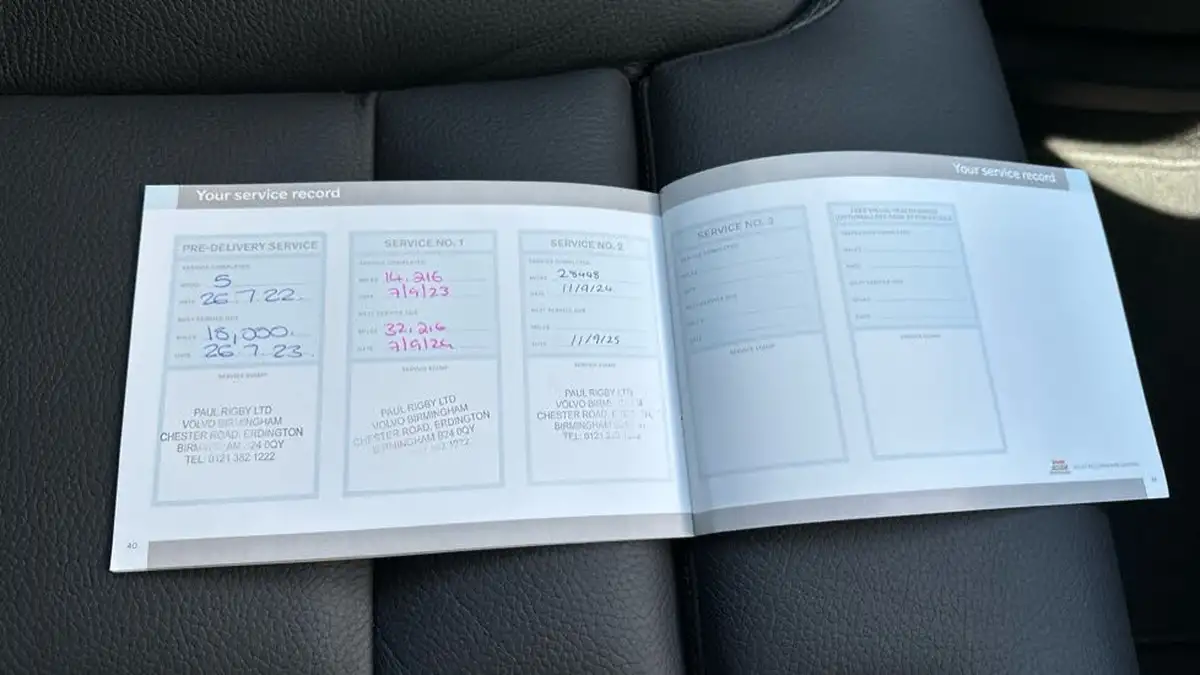 Your service record
PRE-DELIVERY SERVICE
SERVICE COMPLETED
MILES 5
DATE 26.7.22.
NEXT SERVICE DUE
MILES 18,000.
DATE 26.7.23.
SERVICE STAMP
PAUL RIGBY LTD
VOLVO BIRMINGHAM
CHESTER ROAD, ERDINGTON
BIRMINGHAM B24 0QY
TEL: 0121 382 1222
SERVICE NO. 1
SERVICE COMPLETED
MILES 14,216
DATE 7/9/23
NEXT SERVICE DUE
MILES 32,216
DATE 7/9/24
SERVICE STAMP
PAUL RIGBY LTD
VOLVO BIRMINGHAM
CHESTER ROAD, ERDINGTON
BIRMINGHAM B24 0QY
382 1222
SERVICE NO. 2
SERVICE COMPLETED
MILES 28448
DATE 11/9/24
NEXT SERVICE DUE
MILES
DATE 11/9/25
SERVICE STAMP
PAUL RIGBY LTD
VOLVO
CHESTER ROAD,
BIRMINGHAM
TEL: 0121
40
Your service record
SERVICE NO. 3
SERVICE COMPLETED
MILES
DATE
NEXT SERVICE DUE
MILES
DATE
SERVICE STAMP
SERVICE COMPLETED
MILES
DATE
NEXT SERVICE DUE
MILES
DATE
SERVICE STAMP